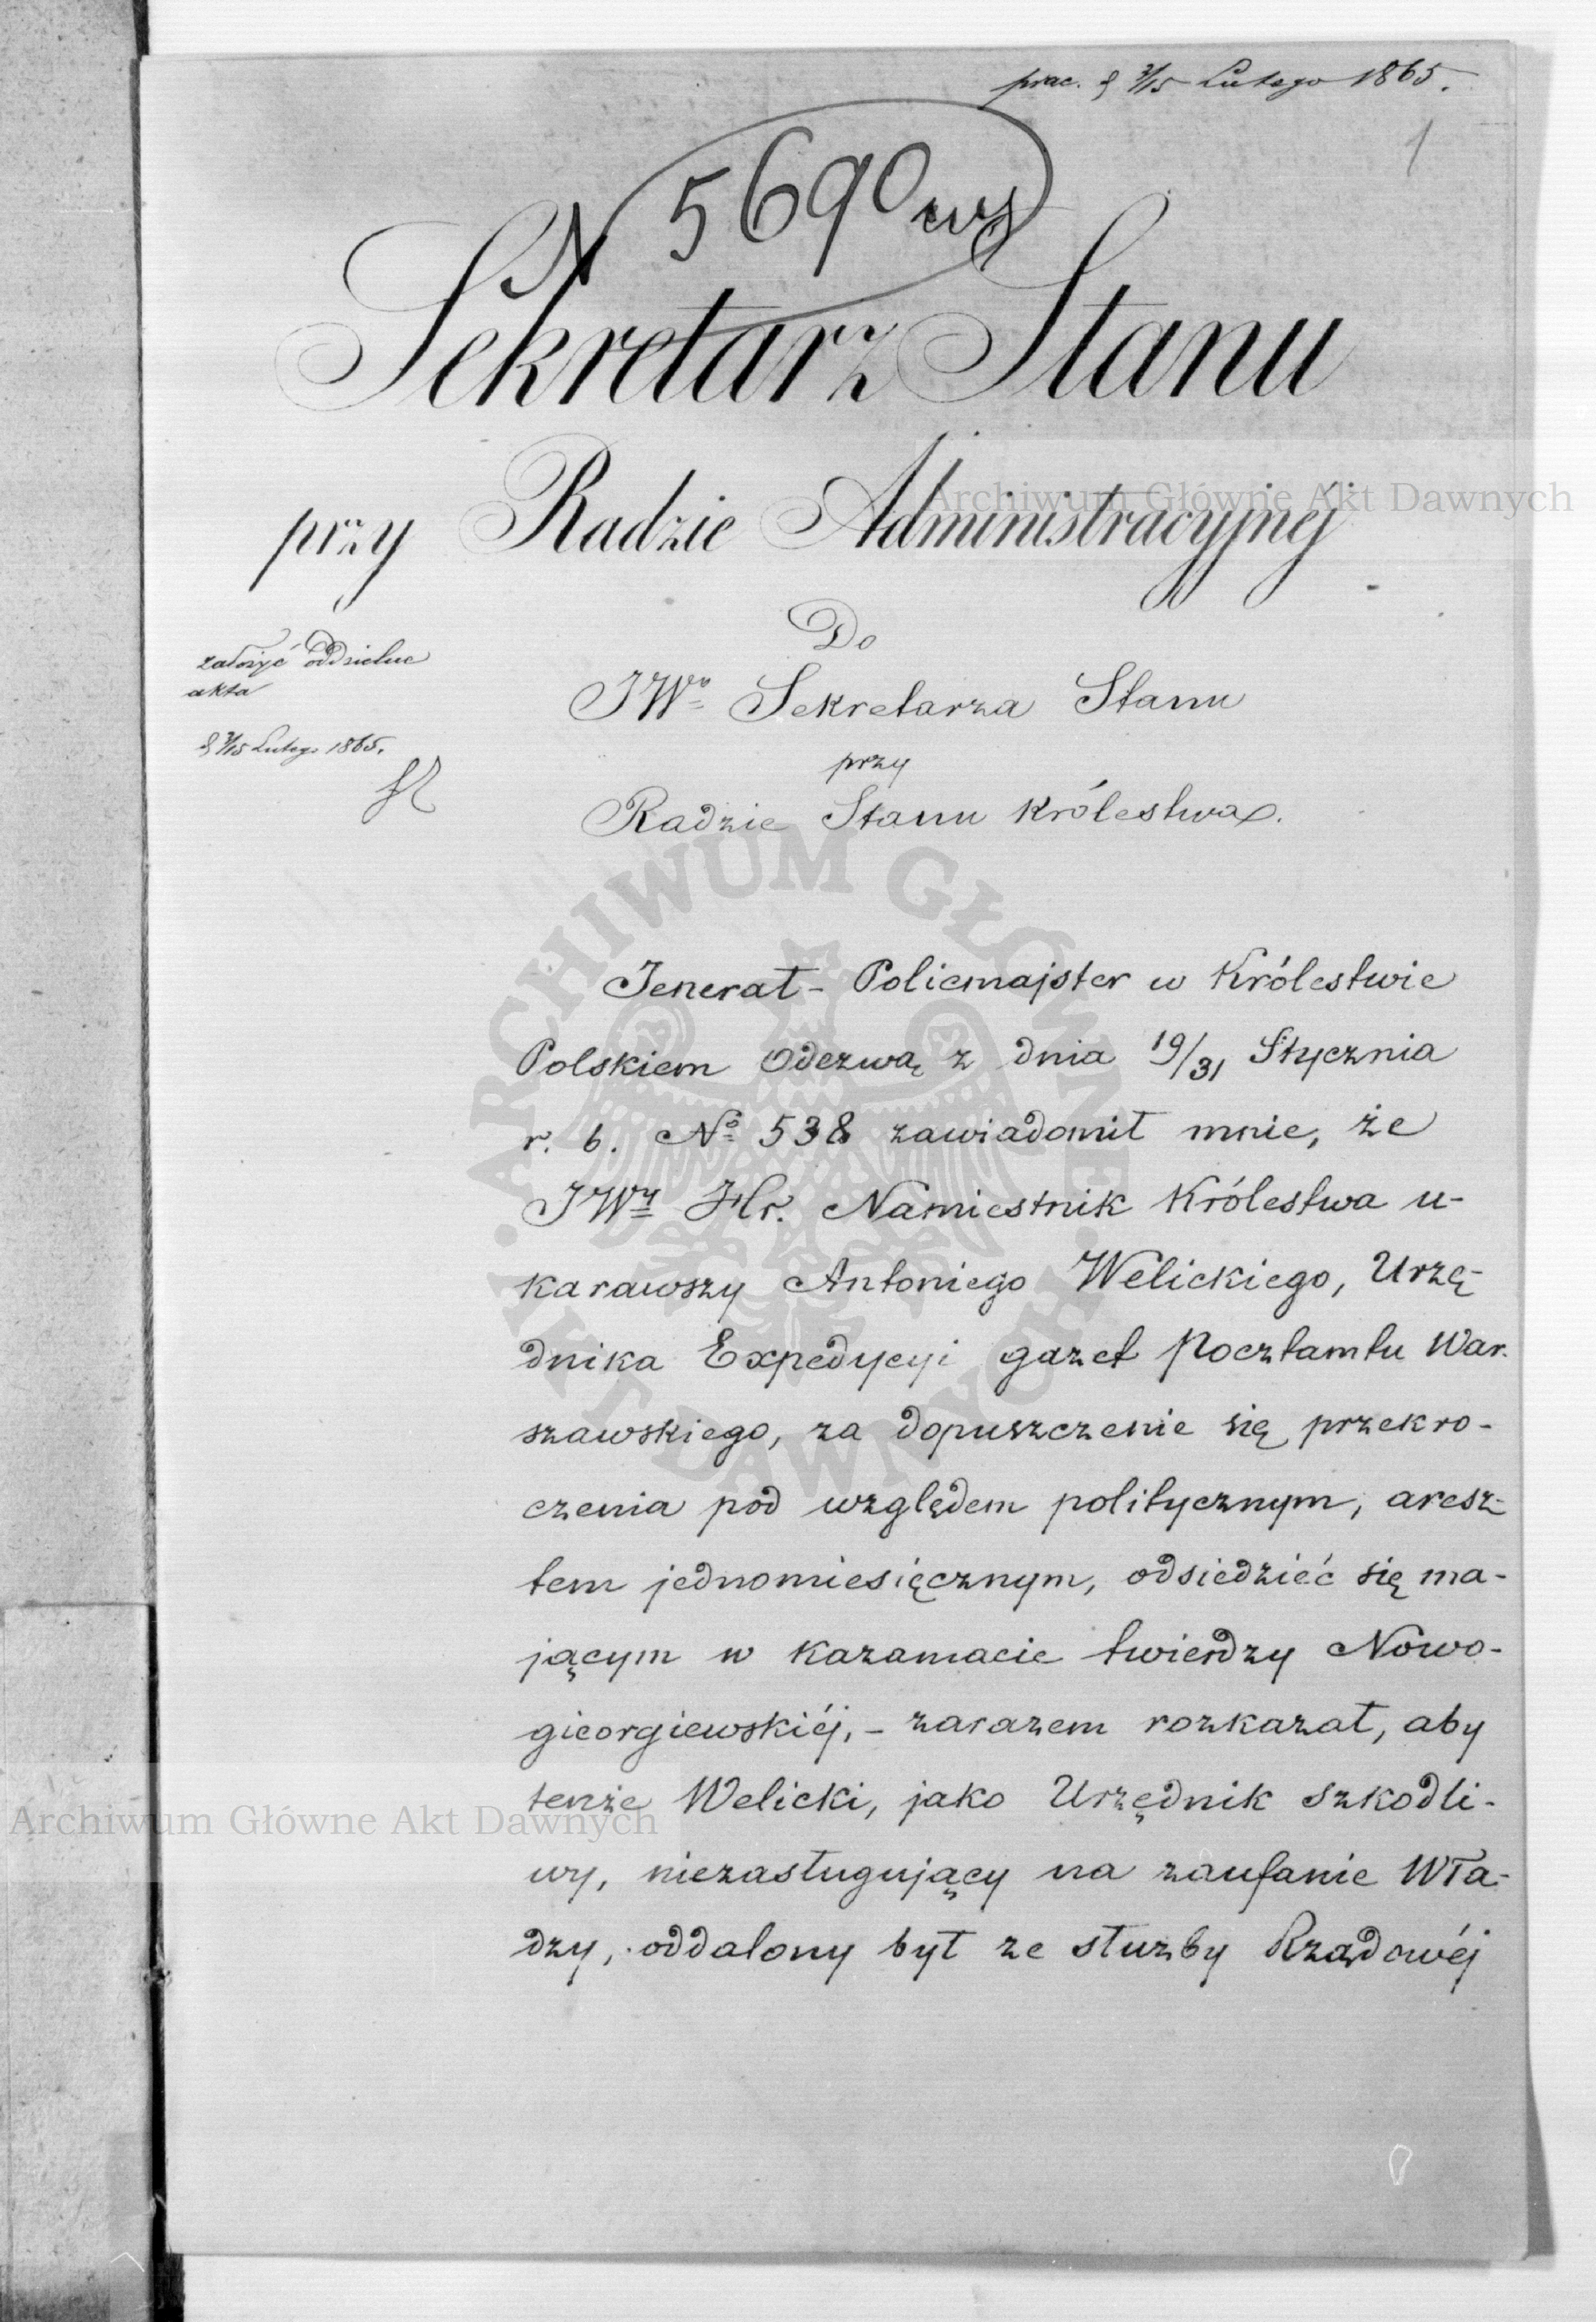 prac. d 3/15 Lutego 1865.
1
N 5690 ws
Sekretarz Stanu
przy Radzie Administracyjnéj
Archiwum Główne Akt Dawnych
założyć oddzielne
akta
d 3/15 Lutego 1865.
Do
JWo Sekretarza Stanu
przy
Radzie Stanu Królestwa.
ARCHIWUM GŁÓWNE
AKT DAWNYCH
Jenerał-Policmajster w Królestwie
Polskiem Odezwą z dnia 19/31 Stycznia
r. b. No 538 zawiadomił mnie, że
JWy Hr. Namiestnik Królestwa u-
karawszy Antoniego Welickiego, Urzę-
dnika Expedycyi gazet Pocztamtu War.
szawskiego, za dopuszczenie się przekro-
czenia pod względem politycznym, aresz-
tem jednomiesięcznym, odsiedzieć się ma-
jącym w kazamacie twierdzy Nowo-
gieorgiewskiéj, - zarazem rozkazał, aby
tenże Welicki, jako Urzędnik szkodli-
wy, niezasługujący na zaufanie Wła-
dzy, oddalony był ze służby Rządowéj
Archiwum Główne Akt Dawnych